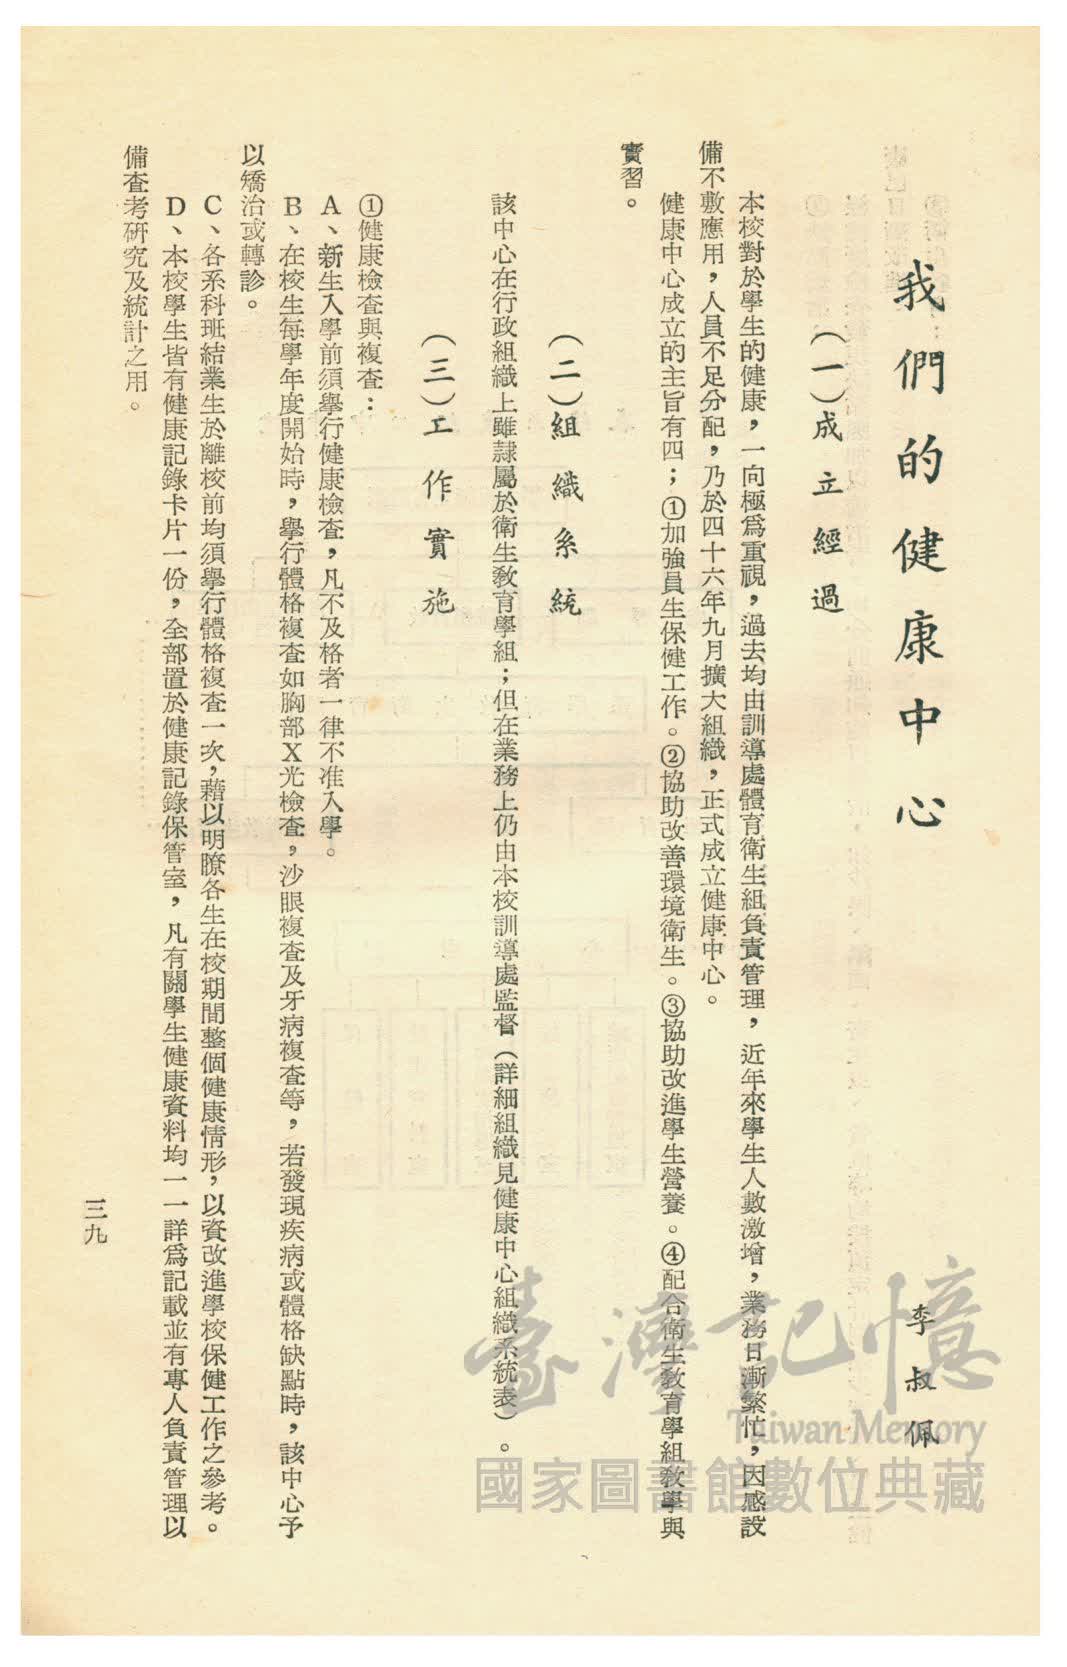 我們的健康中心
李叔佩
（一）成立經過
本校對於學生的健康，一向極爲重視，過去均由訓導處體育衛生組負責管理，近年來學生人數激增，業務日漸繁忙，因感設
備不敷應用，人員不足分配，乃於四十六年九月擴大組織，正式成立健康中心。
健康中心成立的主旨有四；①加強員生保健工作。②協助改善環境衛生。③協助改進學生營養。④配合衛生教育學組教學與
實習。
（二）組織系統
該中心在行政組織上雖隸屬於衛生教育學組；但在業務上仍由本校訓導處監督（詳細組織見健康中心組織系統表）。
（三）工作實施
①健康檢查與複查：
A、新生入學前須舉行健康檢查，凡不及格者一律不准入學。
B、在校生每學年度開始時，舉行體格複查如胸部X光檢查，沙眼複查及牙病複查等，若發現疾病或體格缺點時，該中心予
以矯治或轉診。
C、各系科班結業生於離校前均須舉行體格複查一次，藉以明瞭各生在校期間整個健康情形，以資改進學校保健工作之參考。
D、本校學生皆有健康記錄卡片一份，全部置於健康記錄保管室，凡有關學生健康資料均一一詳爲記載並有專人負責管理以
備查考研究及統計之用。
三九
臺灣記憶
Taiwan Memory
國家圖書館數位典藏